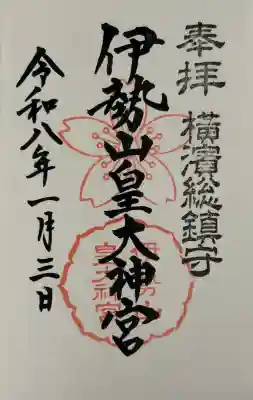 奉拝
横濱総鎮守
伊勢山皇大神宮
令和八年一月三日